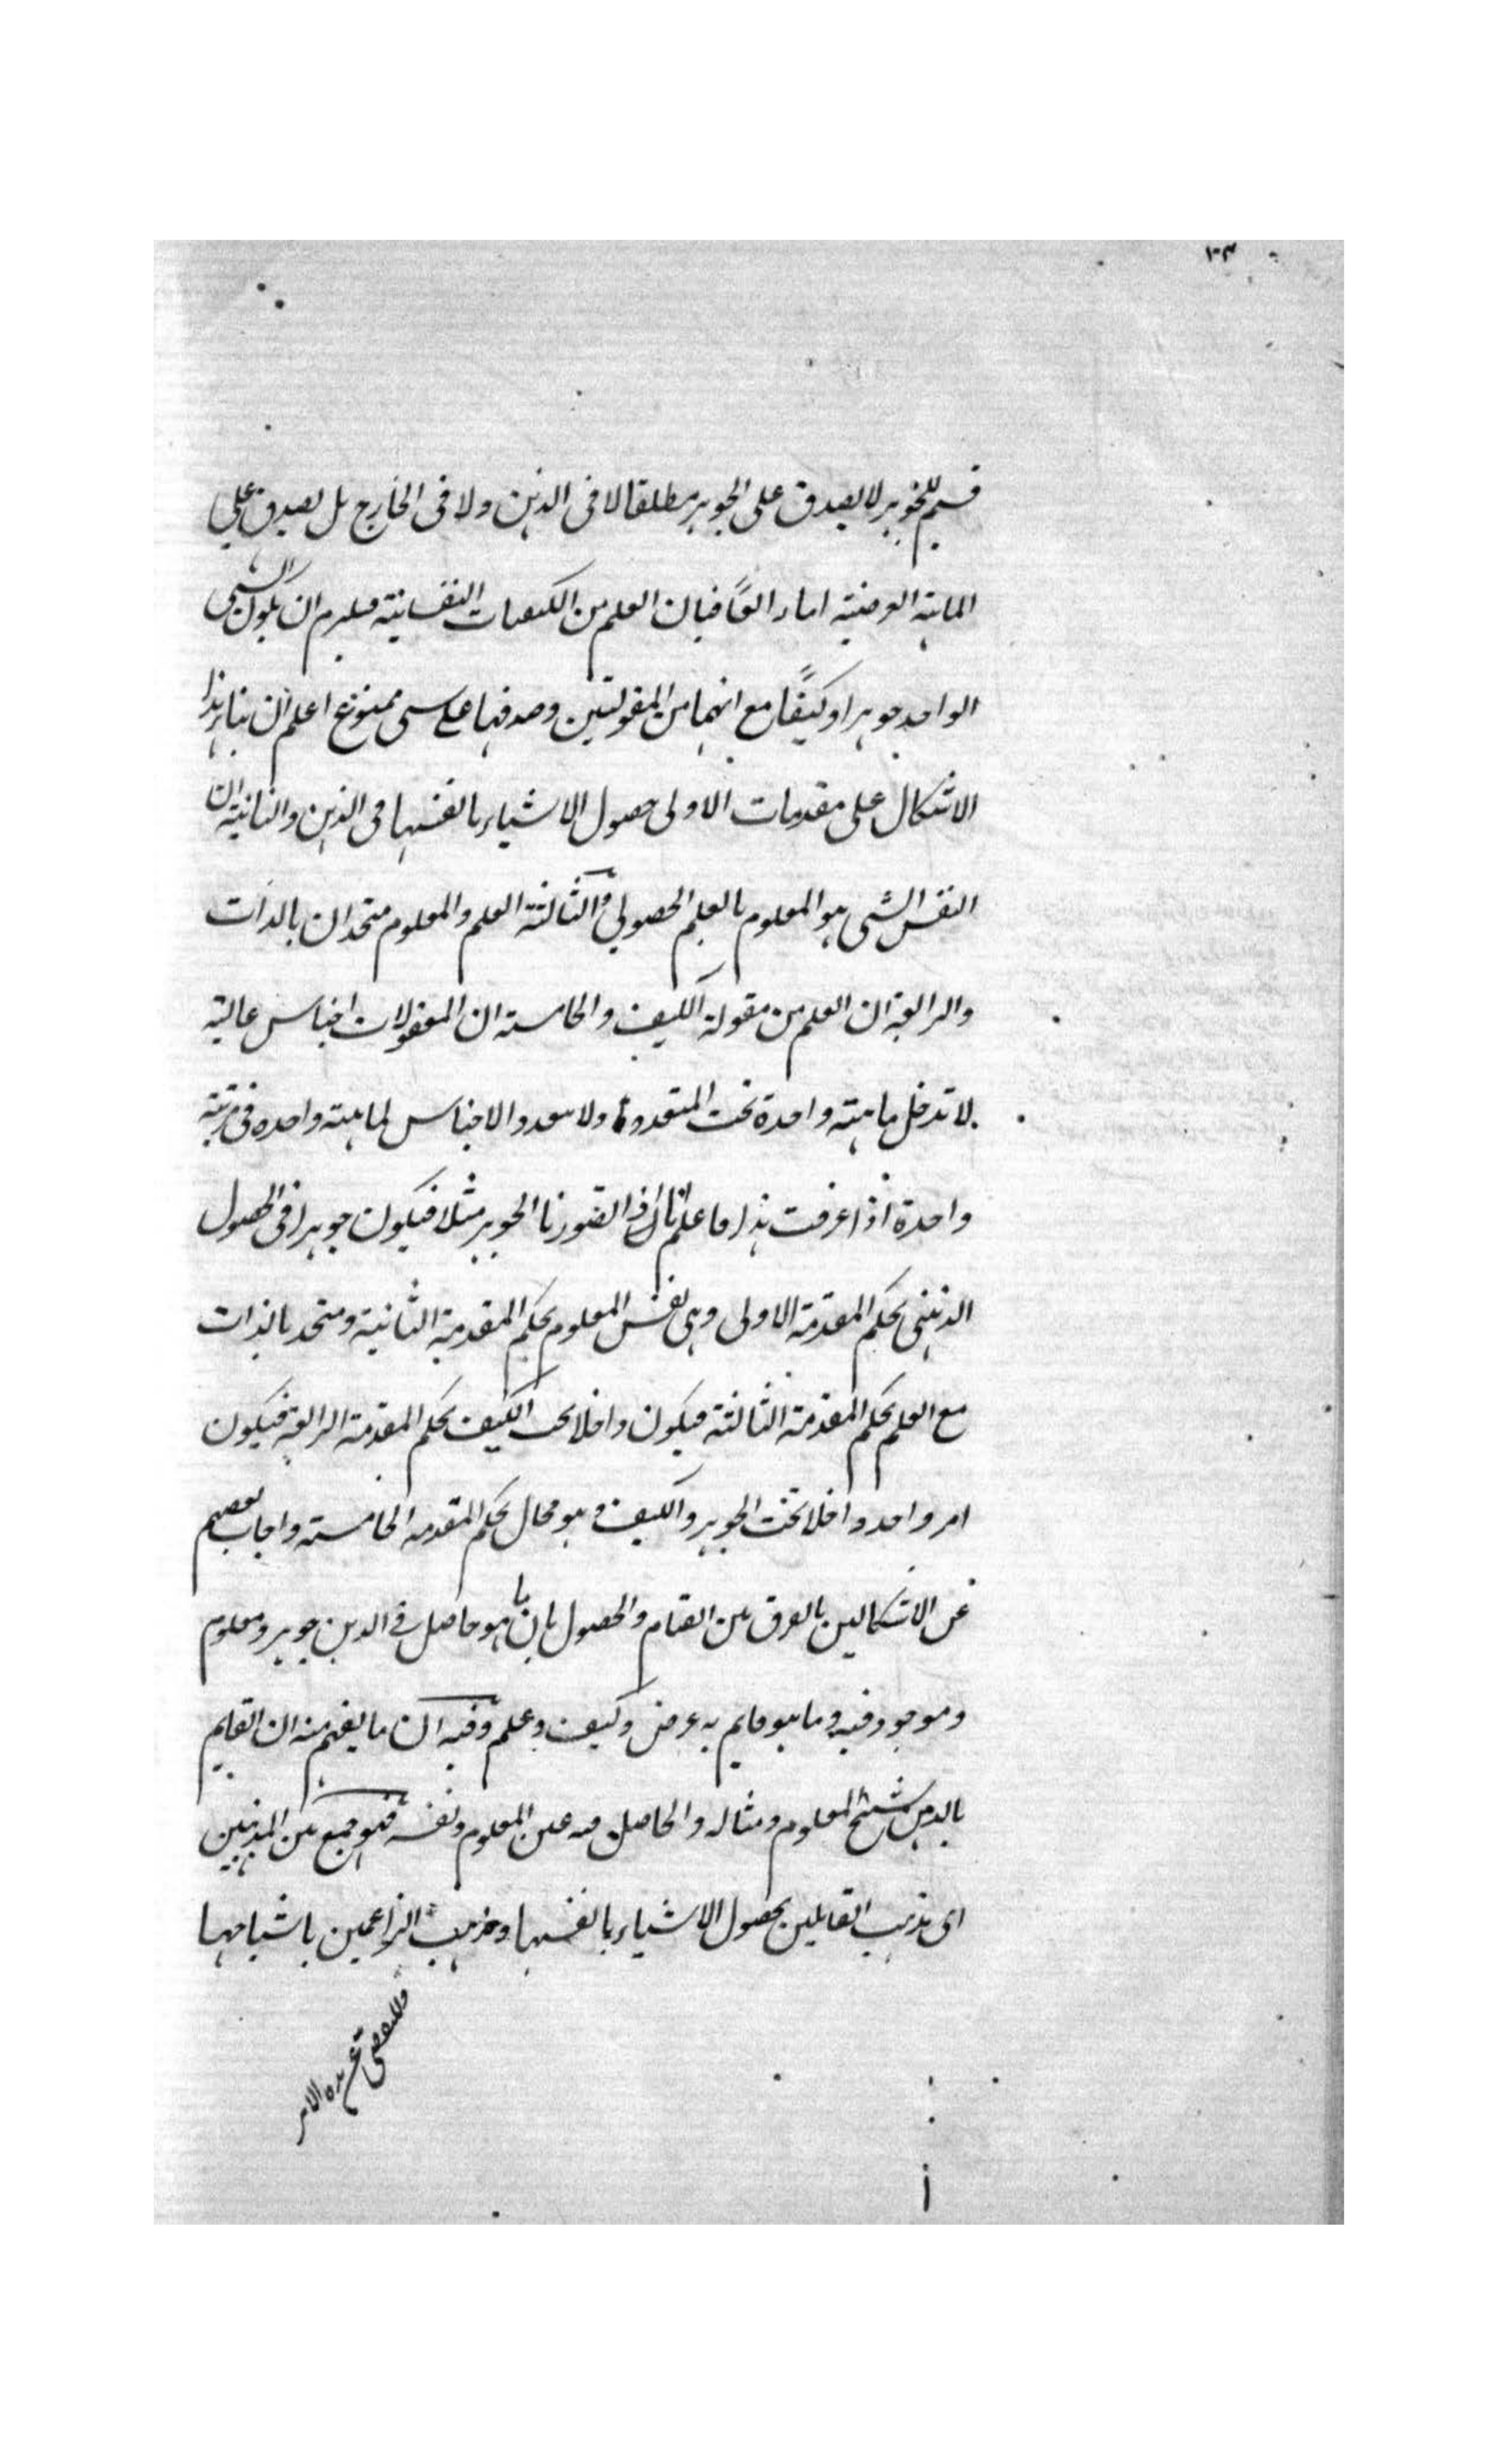 قسيم للجوهر لا يصدق على الجوهر مطلقا لا فى الذهن ولا فى الخارج بل يصدق على
الماهية العرضية فبان العلم من الكيفيات النفسانية فيلزم ان يكون الشى
الواحد جوهرا وكيفًا مع انهما من المقولتين وصدقهما على شى ممنوع اعلم ان بناء هذا
الاشكال على مقدمات الاولى حصول الاشياء بانفسها فى الذهن والثانية ان
النفس الشى هو المعلوم بالعلم الحصولي والثالثة العلم والمعلوم متحدان بالذات
والرابعة ان العلم من مقولة الكيف والخامسة ان المقولات اجناس عالية
لا تدخل ماهية واحدة تحت المتعددة ولا تعدد الاجناس لماهية واحدة فى مرتبة
واحدة اذا عرفت هذا فاعلم انا اذا تصورنا الجوهر مثلا فيكون جوهرا فى الحصول
الذهنى بحكم المقدمة الاولى وهى نفس المعلوم بحكم المقدمة الثانية ومتحد بالذات
مع العلم بحكم المقدمة الثالثة فيكون داخلا تحت الكيف بحكم المقدمة الرابعة فيكون
امر واحد داخلا تحت الجوهر والكيف وهو محال بحكم المقدمة الخامسة واجاب بعضهم
عن الاشكالين بالفرق بين القيام والحصول بان ما هو حاصل فى الذهن جوهر ومعلوم
وموجود فيه وما هو قايم به عرض وكيف وعلم وفيه ان ما يفهم منه ان القايم
بالذهن شبح المعلوم ومثاله والحاصل فيه عين المعلوم ونفسه فهو جمع بين المذهبين
اى مذهب القايلين بحصول الاشياء بانفسها ومذهب الزاعمين باشباحها